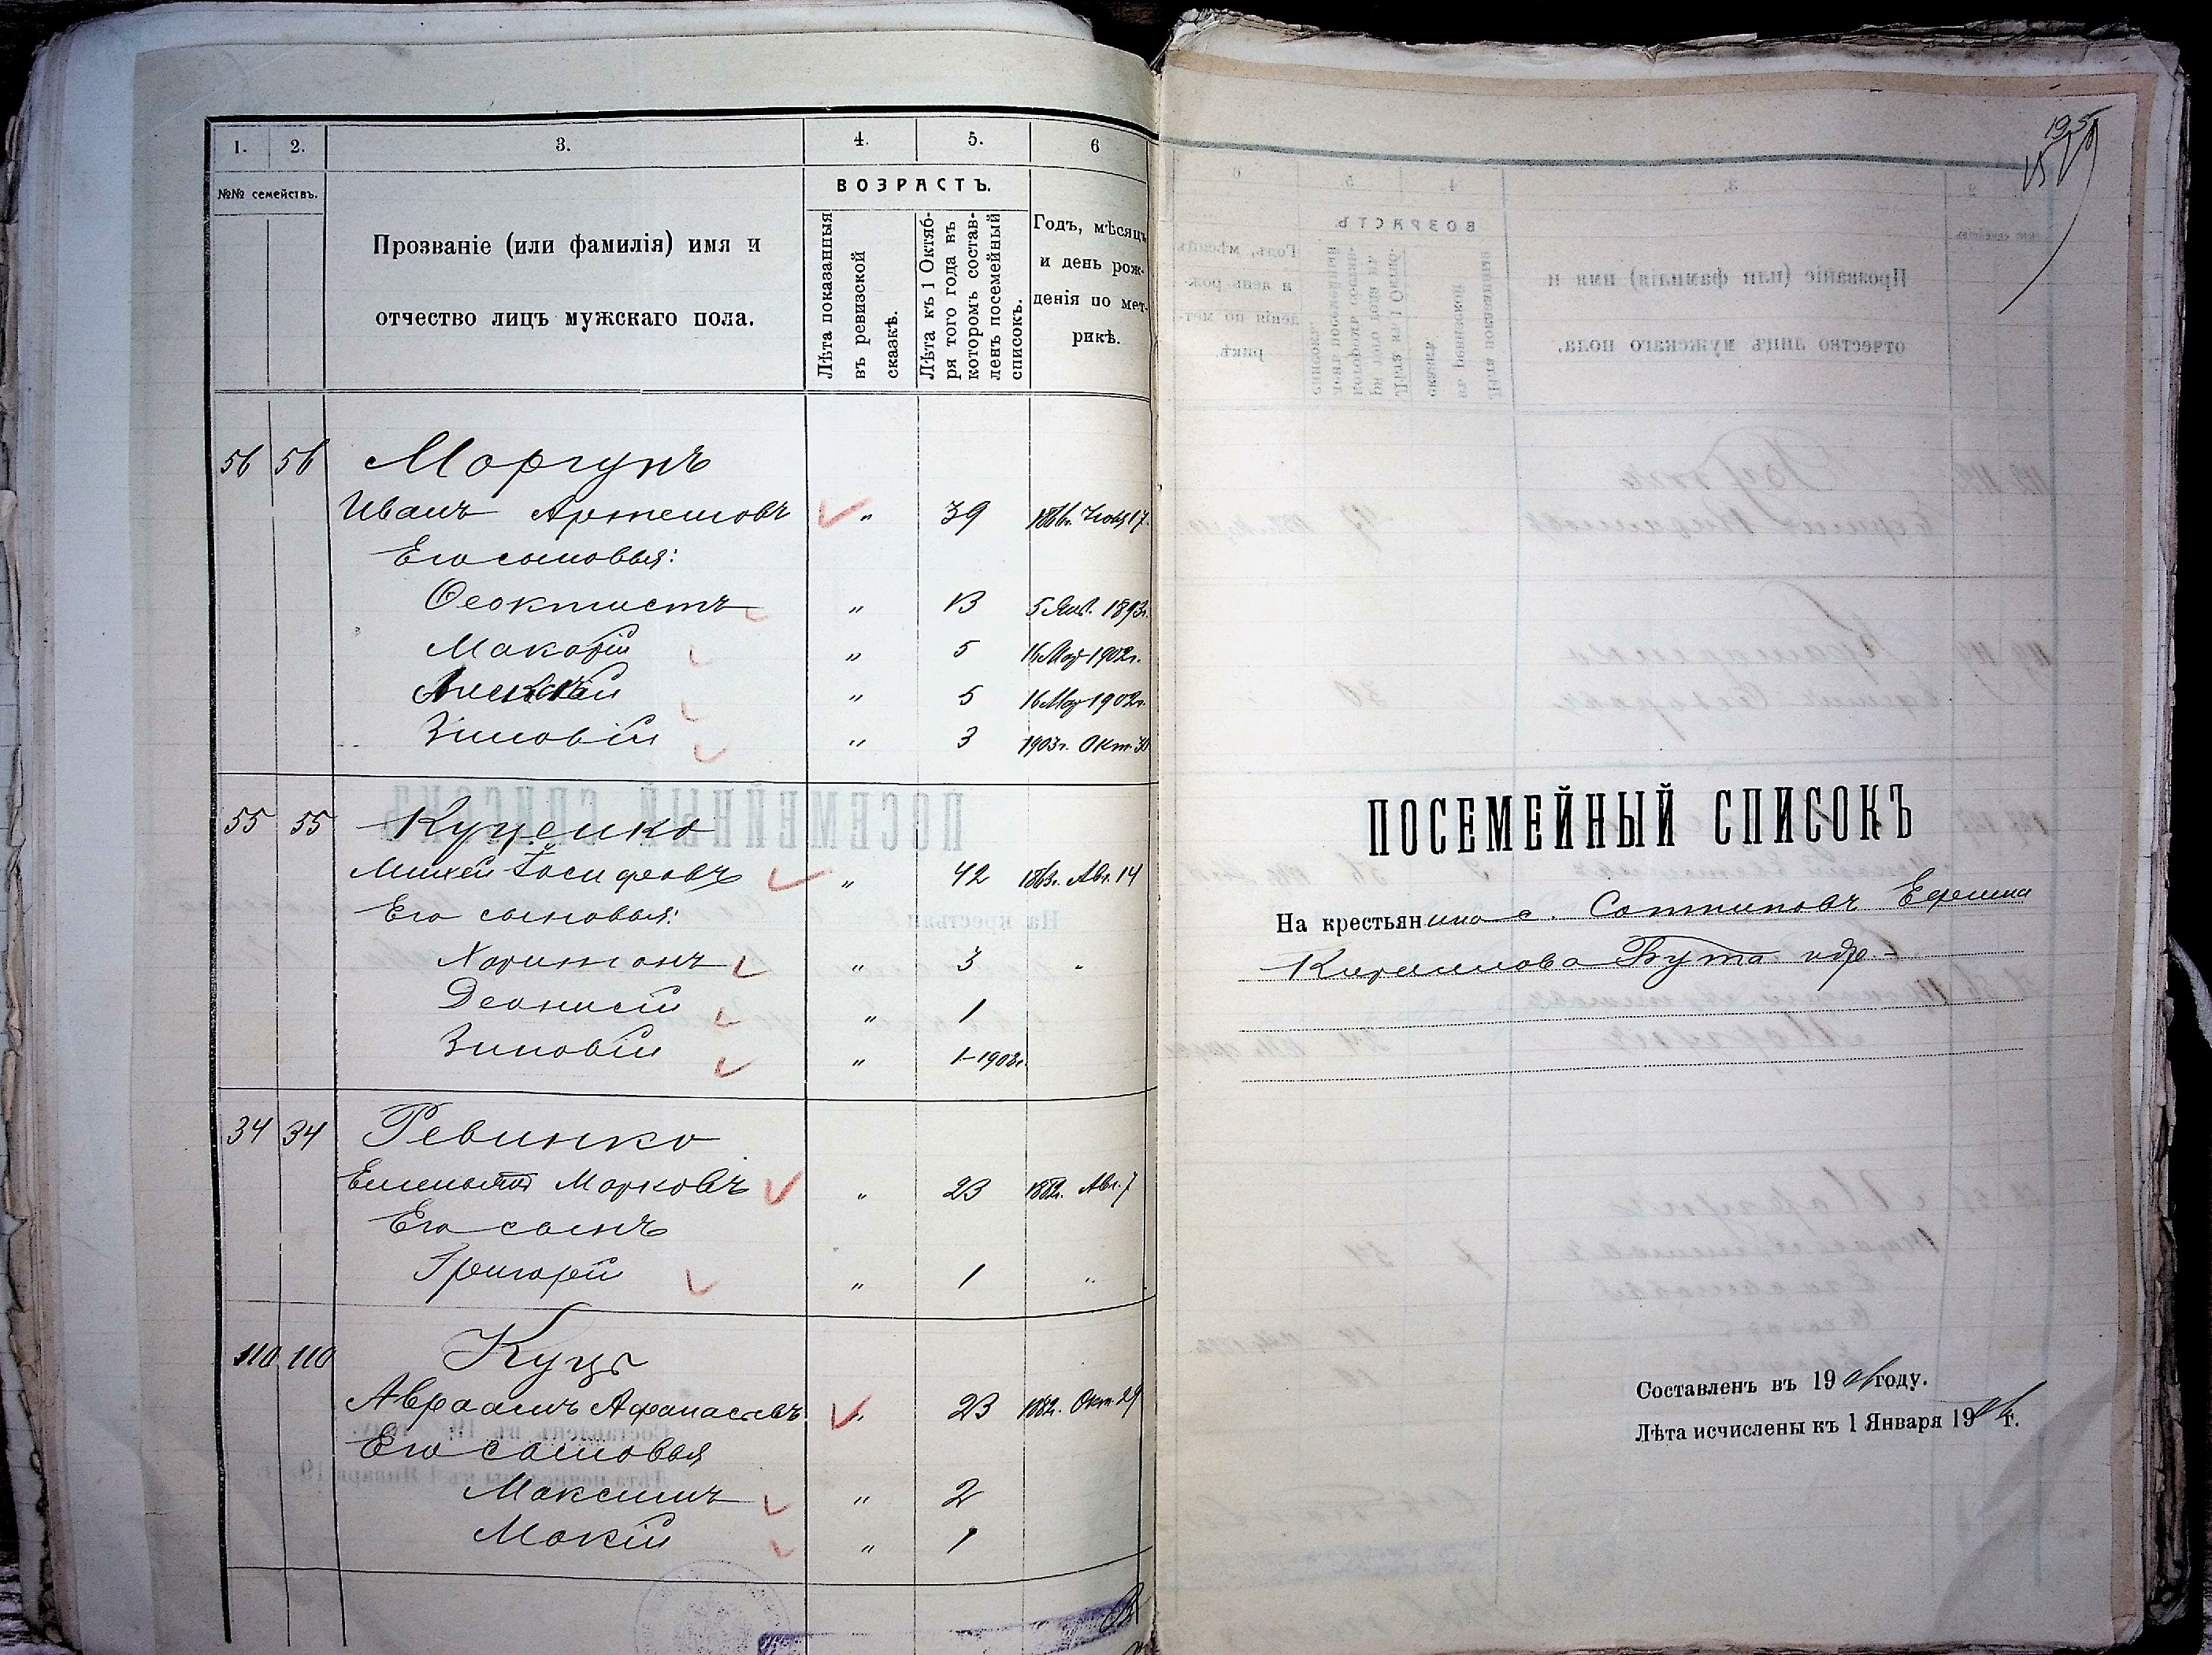 1. 2. 3. 4. 5. 6
№№ семействъ.
Прозваніе (или фамилія) имя и
отчество лицъ мужскаго пола.
ВОЗРАСТЪ.
Лѣта показанныя
въ ревизской
сказкѣ.
Лѣта къ 1 Октяб-
ря того года въ
которомъ состав-
ленъ посемейный
списокъ.
Годъ, мѣсяцъ
и день рож-
денія по мет-
рикѣ.
56 56 Моргунъ
Иванъ Артемовъ " 39 1866г. 17.
Его сыновья:
Ѳеоктистъ " 13 5 Янв. 1893г.
Макарій " 5 16 Мар 1902г.
Алексѣй " 5 16 Мар 1902г.
Зиновій " 3 1903г. Окт. 30
55 55 Куценко
Михей Іосифовъ " 42 1863г. Авг. 14
Его сыновья:
Харитонъ " 3 "
Деонисій " 1
Зиновій " 1-1902г.
34 34 Ревинко
Емельянъ Марковъ " 23 1882г. Авг. 7
Его сынъ
Григорій " 1 "
110 110 Куцъ
Авраамъ Афанасьевъ " 23 1882г. Окт. 29
Его сыновья
Максимъ " 2
Мокій " 1
195
ПОСЕМЕЙНЫЙ СПИСОКЪ
На крестьянина с. Сотниковъ Ефима
Кирилова Бута и др.
Составленъ въ 1906 году.
Лѣта исчислены къ 1 Января 1906 г.